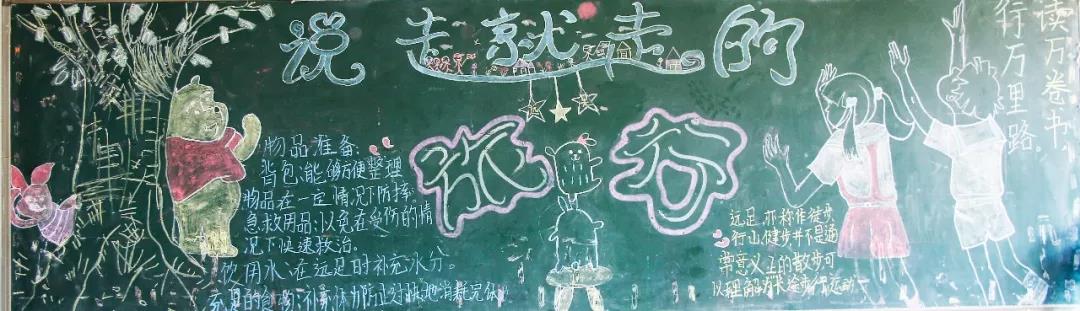 说走就走的
旅行
读万卷书
行万里路
物品准备:
背包:能够方便整理
物品在一定情况下防摔。
急救用品:以免在受伤的情
况下快速救治。
饮用水:在远足时补充水分。
充足的食物:补充体力防止对
远足,亦称作徒步
行山,健步并不是通
常意义上的散步可
以理解为长途步行运动